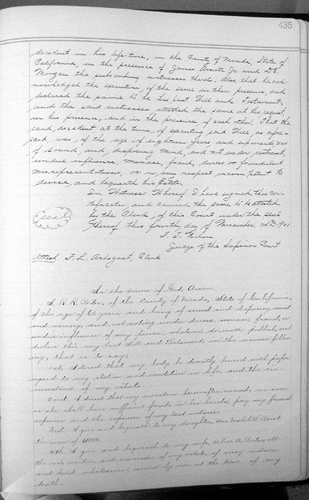 435
decedent in his life time, in the County of Nevada, State of
California, in the presence of Jones and D. E.
Morgan the subscribing witnesses thereto. Also, that he ack-
nowledged the execution of the same in their presence and
declared the same to be his last Will and Testament,
and the said witnesses attested the same at his request
in his presence, and in the presence of each other. That the
said decedent at the time of executing said Will, as afore-
said, was of the age of eighteen years and upwards was
of sound and disposing mind, and not under restraint,
undue influence, menace, fraud, duress or fraudulent
misrepresentations, or in any respect incompetent to
devise, and bequeath his Estate.
In Witness Whereof, I have signed this cer-
tificate, and caused the same to be attested
by the Clerk, of this Court under the seal
thereof, this fourth day of November A.D. 1901
(Seal)
F. T. Nilon
Judge of the Superior Court
Attest F. L. Arbogast, Clerk
In the name of God, Amen.
I, R. R. of the County of Nevada, State of California,
of the age of 63 years and being of sound and disposing mind
and memory, and not acting under duress, menace, fraud, or
undue influence of any person whatever do make, publish, and
declare this my last Will and Testament, in the manner follow-
ing, that is to say:
1st. I direct that my body be decently buried with proper
regard to my station and condition in life, and the cir-
cumstances of my estate.
2nd. I direct that my executrix hereinafter named, as soon
as she shall have sufficient funds in her hands, pay my funeral
expenses and the expenses of my last sickness.
3rd. I give and bequeath to my daughter,
the sum of
4th. I give and bequeath to my wife, all
the rest, residue and remainder of my estate, of every nature
and kind whatsoever, owned by me at the time of my
death.